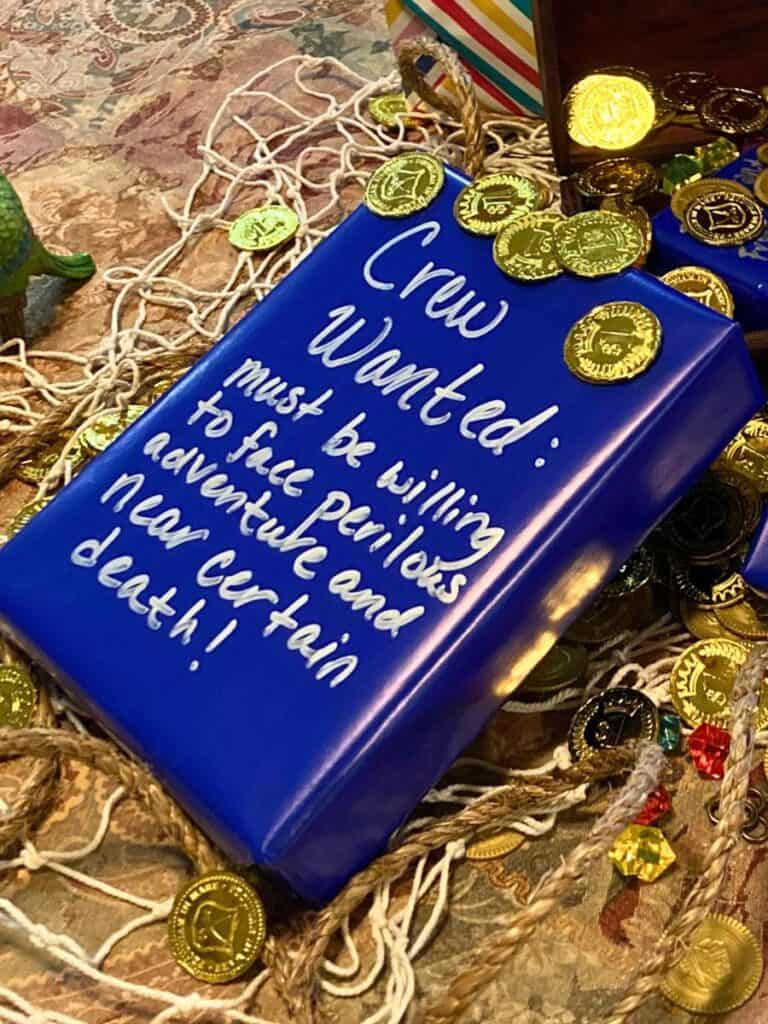 Crew
Wanted:
must be willing
to face perilous
adventure and
near certain
death!